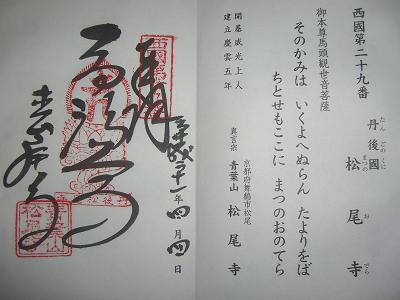 西國第二十九番
丹後國 松尾寺
たんごのくに まつのおでら
御本尊馬頭観世音菩薩
そのかみは いくよへぬらん たよりをば
ちとせもここに まつのおのてら
開基威光上人
建立慶雲五年
京都府舞鶴市松尾
真言宗 青葉山 松尾寺
奉拝
平成二十一年四月四日
松尾寺